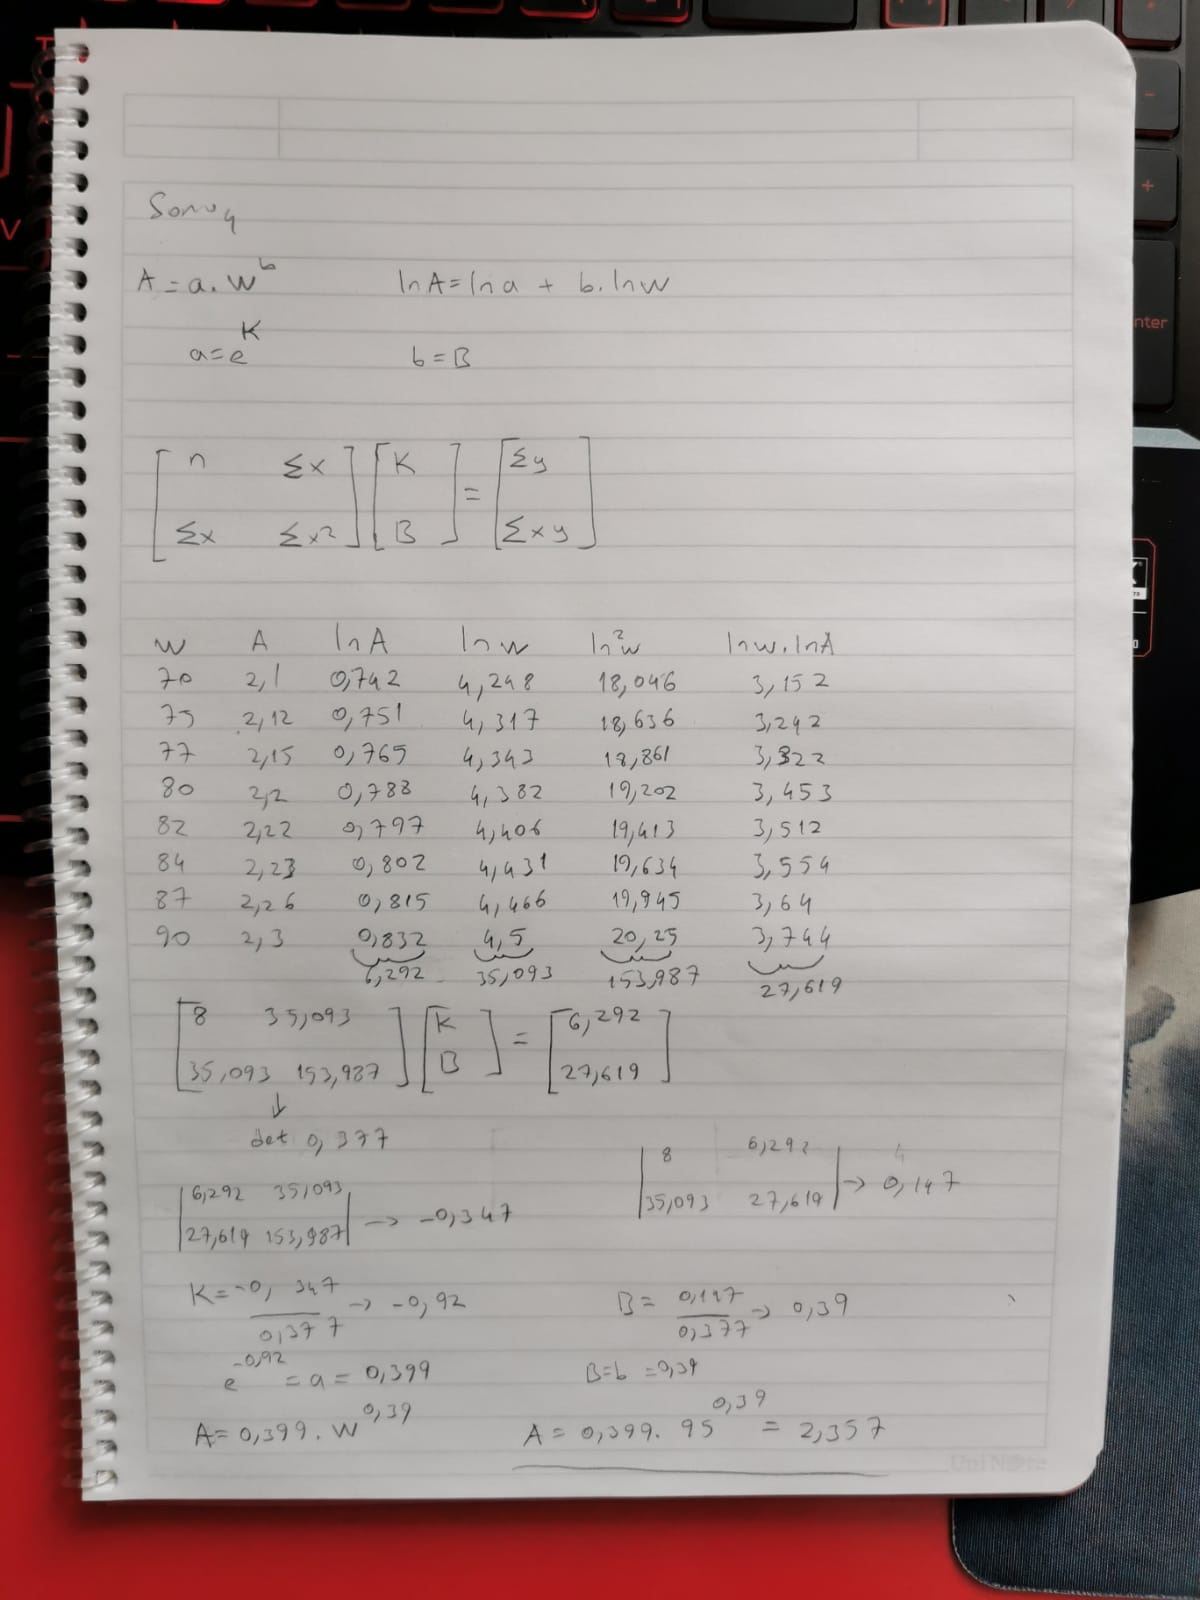 Soru 4
A = a. w^b lnA = ln a + b. ln w
a = e^K b = B
[ n Σx ] [ K ] = [ Σy ]
[ Σx Σx² ] [ B ] [ Σxy ]
w A lnA ln w ln²w lnw. lnA
70 2,1 0,742 4,248 18,046 3,152
75 2,12 0,751 4,317 18,636 3,242
77 2,15 0,765 4,343 18,861 3,322
80 2,2 0,788 4,382 19,202 3,453
82 2,22 0,797 4,406 19,413 3,512
84 2,23 0,802 4,431 19,634 3,554
87 2,26 0,815 4,466 19,945 3,64
90 2,3 0,832 4,5 20,25 3,744
6,292 35,093 153,987 27,619
[ 8 35,093 ] [ K ] = [ 6,292 ]
[ 35,093 153,987 ] [ B ] [ 27,619 ]
↓
det 0,377
| 6,292 35,093 |
| 27,619 153,987 | → -0,347
| 8 6,292 |
| 35,093 27,619 | → 0,147
K = -0,347 / 0,377 → -0,92 B = 0,147 / 0,377 → 0,39
e^-0,92 = a = 0,399 B=b = 0,39
A = 0,399. w^0,39 A = 0,399. 95^0,39 = 2,357
Uni Note
enter